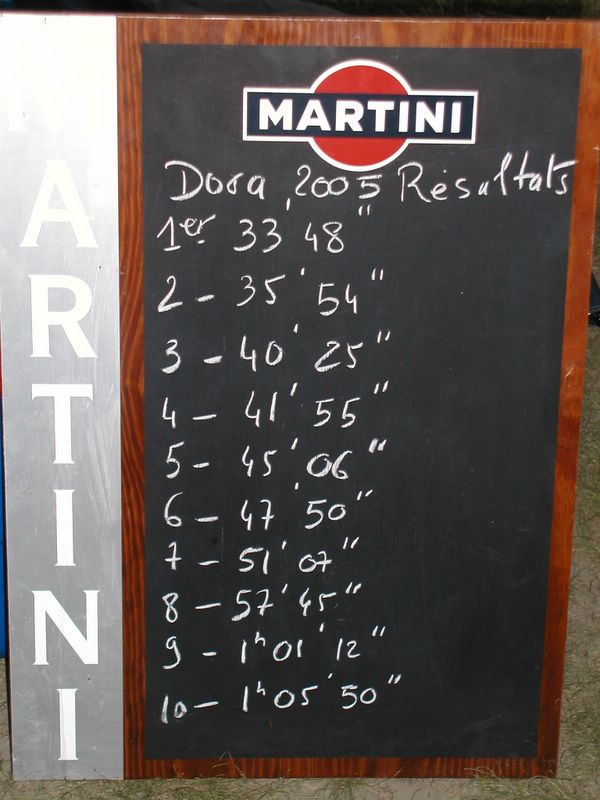 MARTINI
MARTINI
Dora 2005 Résultats
1er 33'48"
2 - 35'54"
3 - 40'25"
4 - 41'55"
5 - 45'06"
6 - 47'50"
7 - 51'07"
8 - 57'45"
9 - 1h01'12"
10 - 1h05'50"